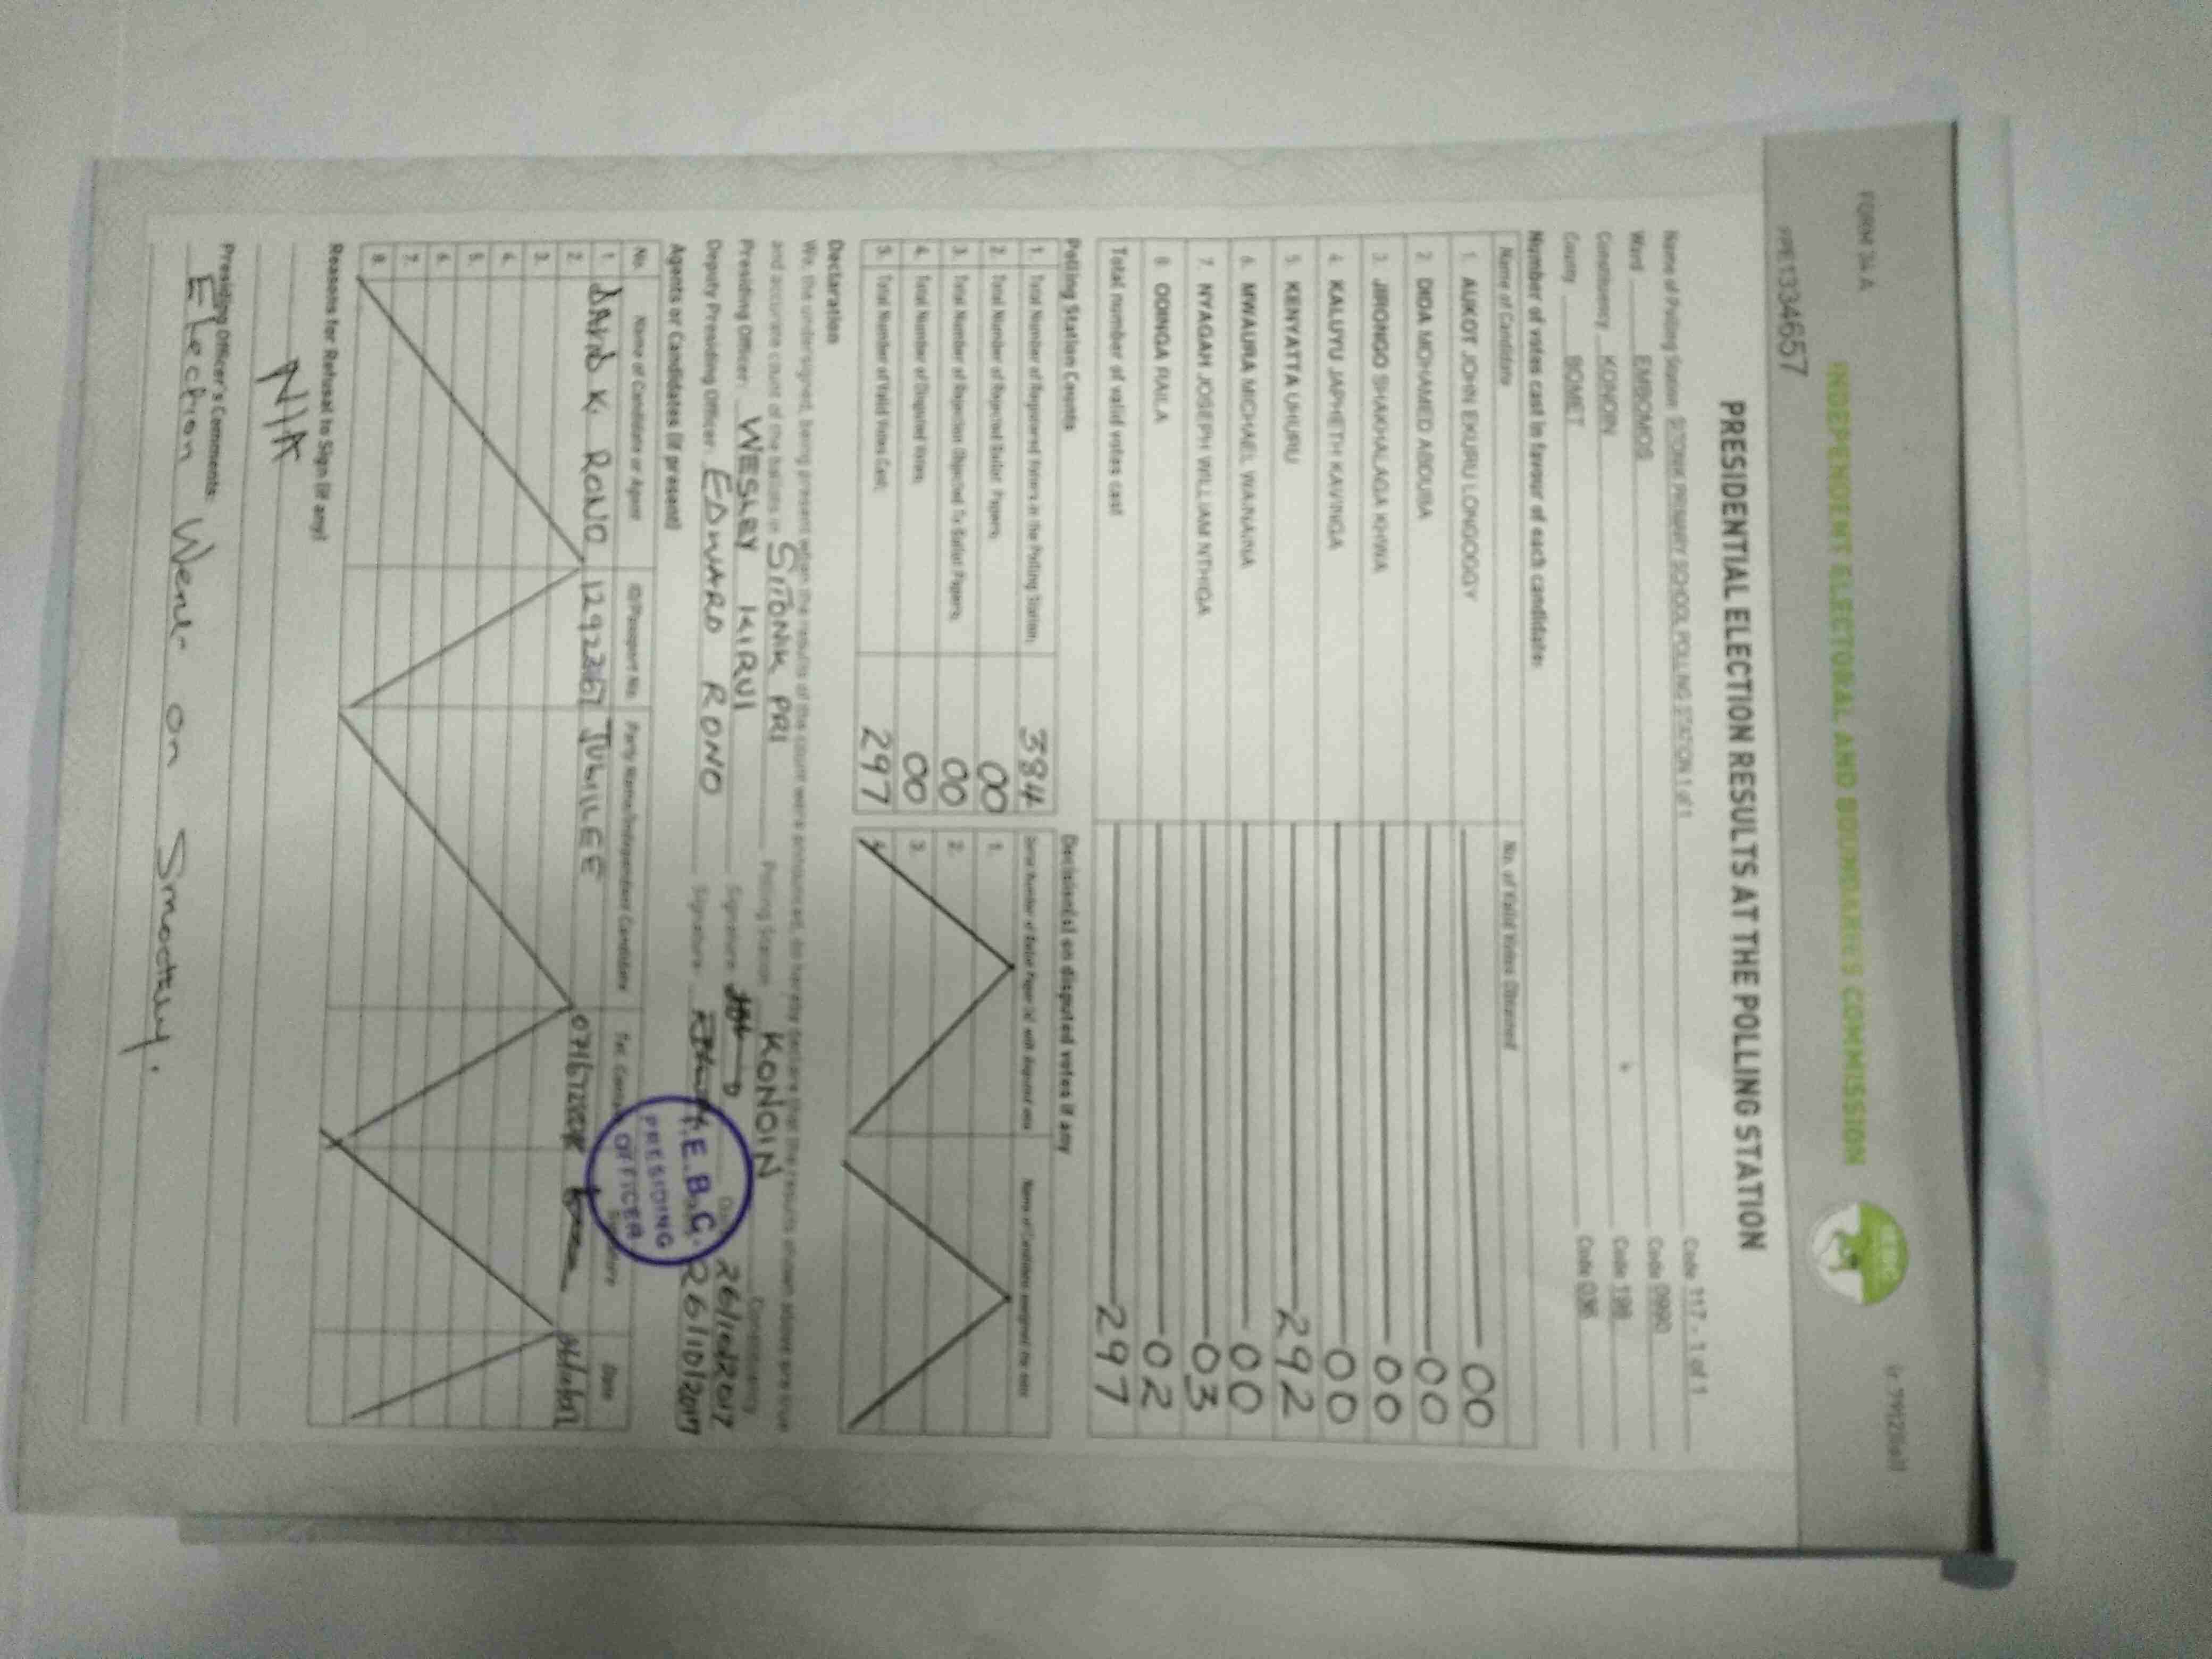 FORM 34 A
INDEPENDENT ELECTORAL AND BOUNDARIES COMMISSION
IEBC
PPE1334657
PRESIDENTIAL ELECTION RESULTS AT THE POLLING STATION
Name of Polling Station SITONIK PRIMARY SCHOOL POLLING STATION 1 of 1 Code 117 - 1 of 1
Ward EMBOMOS Code 0990
Constituency KONOIN Code 198
County BOMET Code 036
Number of votes cast in favour of each candidate:
Name of Candidate No. of Valid Votes Obtained
1. AUKOT JOHN EKURU LONGOGGY 00
2. DIDA MOHAMED ABDUBA 00
3. JIRONGO SHAKHALAGA KHWA 00
4. KALUYU JAPHETH KAVINGA 00
5. KENYATTA UHURU 292
6. MWAURA MICHAEL WAINAINA 00
7. NYAGAH JOSEPH WILLIAM NTHIGA 03
8. ODINGA RAILA 02
Total number of valid votes cast 297
Polling Station Counts
1. Total Number of Registered Voters in the Polling Station 384
2. Total Number of Rejected Ballot Papers 00
3. Total Number of Rejection Objected To Ballot Papers 00
4. Total Number of Disputed Votes 00
5. Total Number of Valid Votes Cast 297
Decision(s) on disputed votes if any
Serial Number of Ballot Paper (s) with disputed vote Name of Candidate assigned the vote
1.
2.
3.
4.
Declaration
We, the undersigned, being present when the results of the count were announced, do hereby declare that the results shown above are true
and accurate count of the ballots in SITONIK PRI Polling Station KONOIN Constituency
Presiding Officer: WESLEY KIRUI Signature Date 26/10/2017
Deputy Presiding Officer: EDWARD RONO Signature 26/10/2017
I.E.B.C.
PRESIDING
OFFICER
Agents or Candidates (if present)
No. Name of Candidate or Agent ID/Passport No. Party Name/Independent Candidate Tel. Contact Signature Date
1. DAVID K. RONO JUBILEE
2.
3.
4.
5.
6.
7.
8.
Reasons for Refusal to Sign (if any)
N/A
Presiding Officer's Comments:
Election Went on Smoothly.